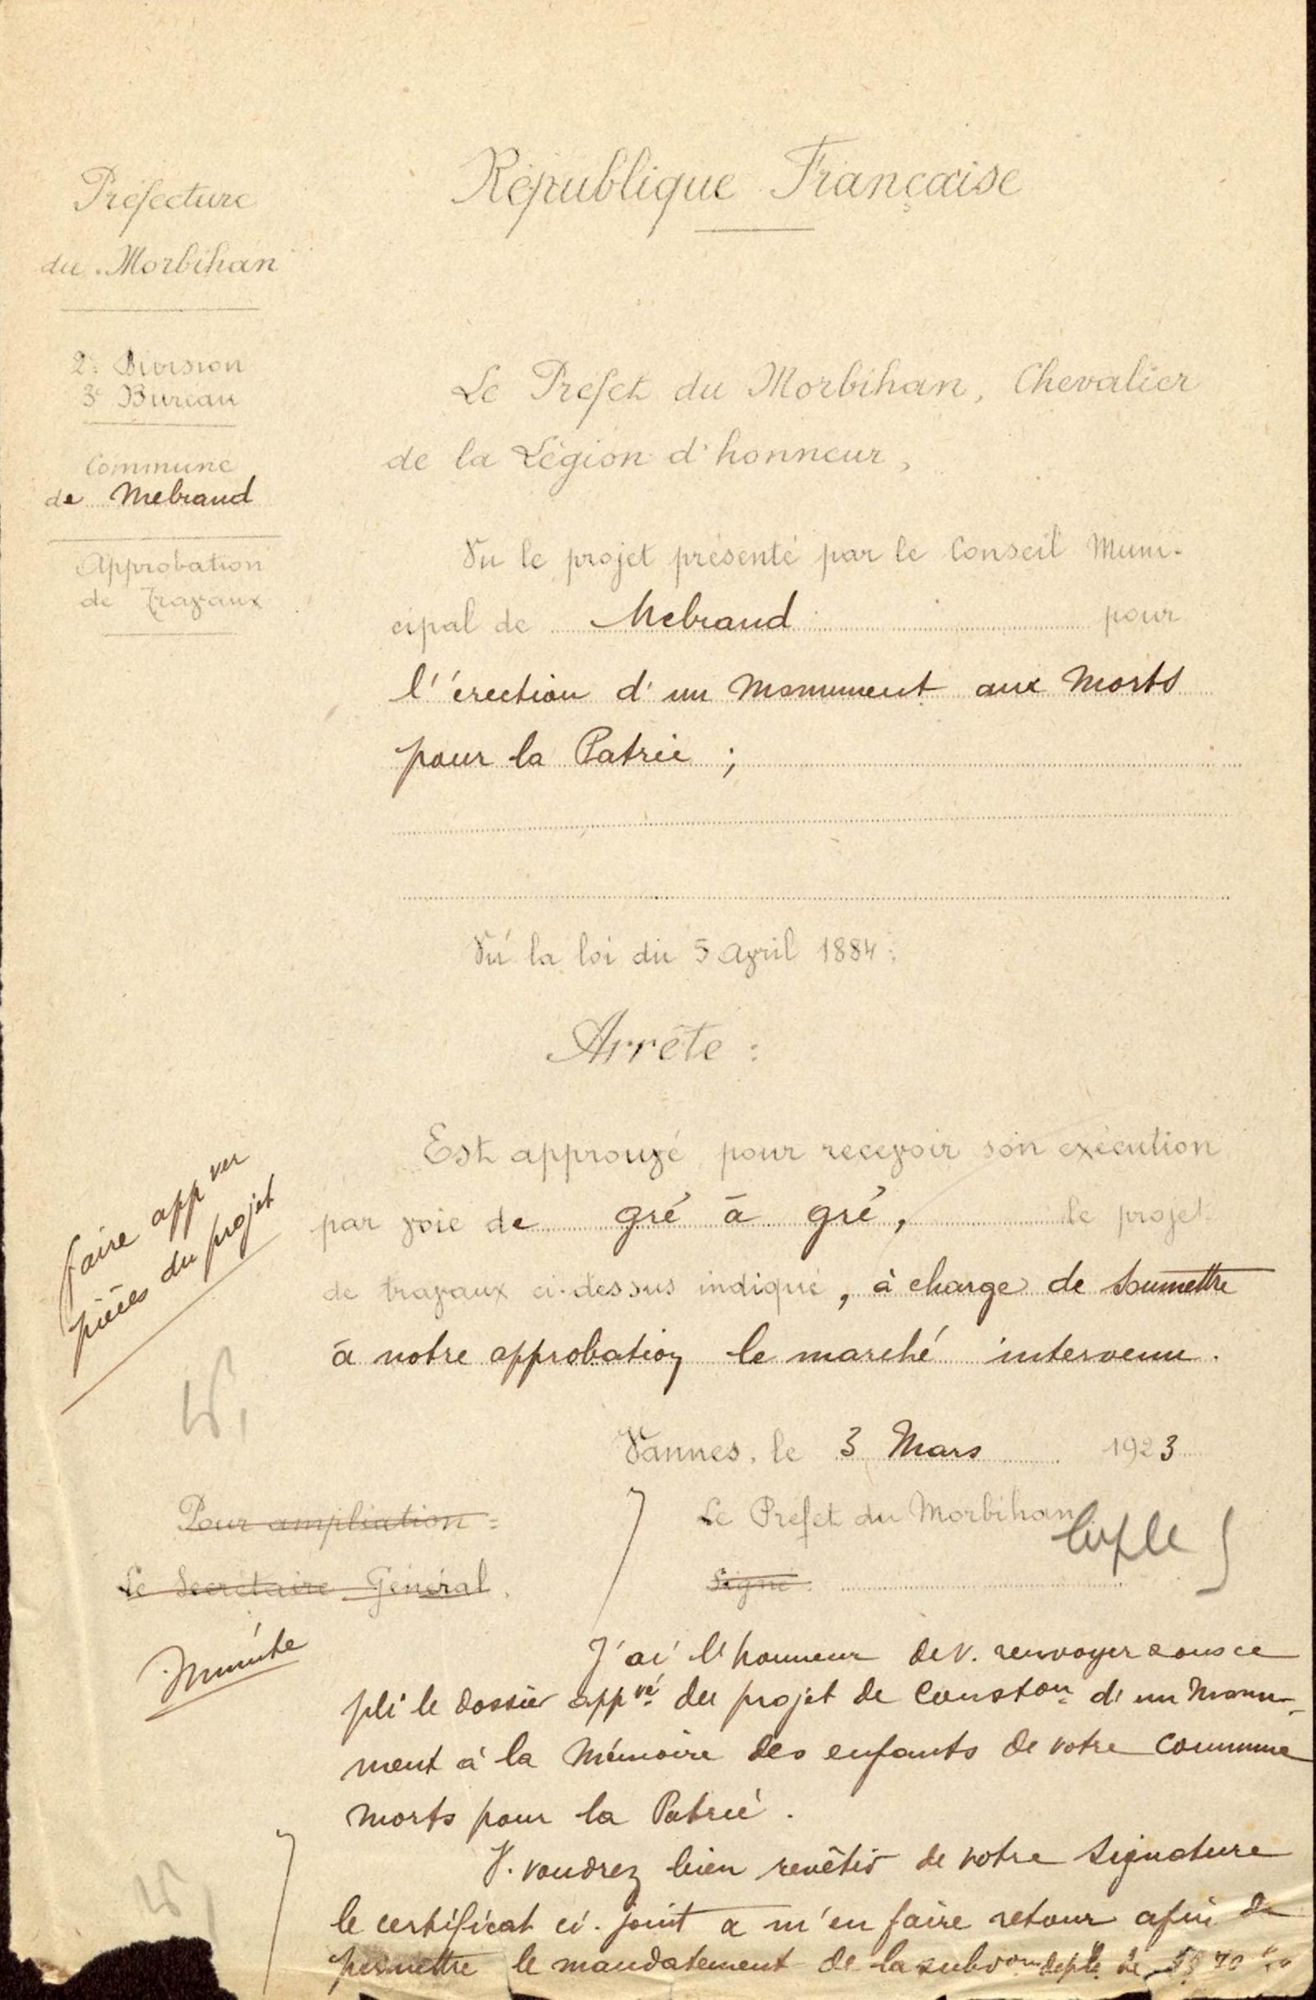 République Française
Préfecture
du Morbihan
2e Division
3e Bureau
Commune
de Mebrand
Approbation
de Travaux
Le Préfet du Morbihan, Chevalier
de la Légion d'honneur,
Vu le projet présenté par le Conseil Muni-
cipal de Mebrand pour
l'érection d'un Monument aux Morts
pour la Patrie ;
Vu la loi du 5 Avril 1884 ;
Arrête :
Est approuvé pour recevoir son exécution
par voie de gré à gré, le projet
de travaux ci-dessus indiqué, à charge de soumettre
à notre approbation le marché intervenu.
faire app ver
pièces du projet
Vannes, le 3 Mars 1923
Pour ampliation =
Le Secrétaire Général,
Le Préfet du Morbihan
Signé
Minute
J'ai l'honneur de v. renvoyer sous ce
pli le dossier appvé du projet de Constion d'un Monu-
ment à la Mémoire des enfants de votre Commune
Morts pour la Patrie.
V. voudrez bien revêtir de votre Signature
le certificat ci-joint a m'en faire retour afin de
permettre le mandatement de la subvon deple de